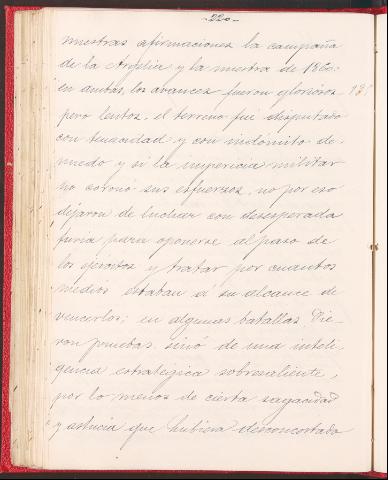 -220-
nuestras afirmaciones la campaña
de la Argelia y la nuestra de 1860:
en ambas, los avances fueron gloriosos
pero lentos, el terreno fué disputado
con tenacidad y con indómito de-
nuedo y si la impericia militar
no coronó sus esfuerzos, no por eso
dejaron de luchar con desesperada
furia para oponerse al paso de
los ejércitos y tratar por cuantos
medios estaban a su alcance de
vencerlos; en algunas batallas die-
ron pruebas, sinó de una inteli-
gencia estratégica sobresaliente,
por lo menos de cierta sagacidad
y astucia que hubiera desconcertado